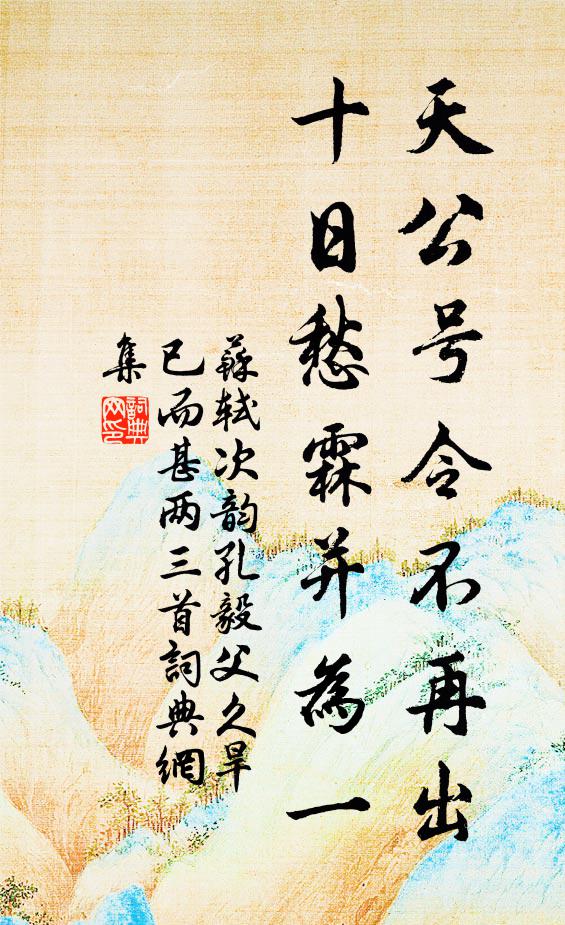 天公号令不再出
十日愁霖并為一
蘇軾次韵孔毅父久旱
已而甚两三首詞典網
集
詞典
网印